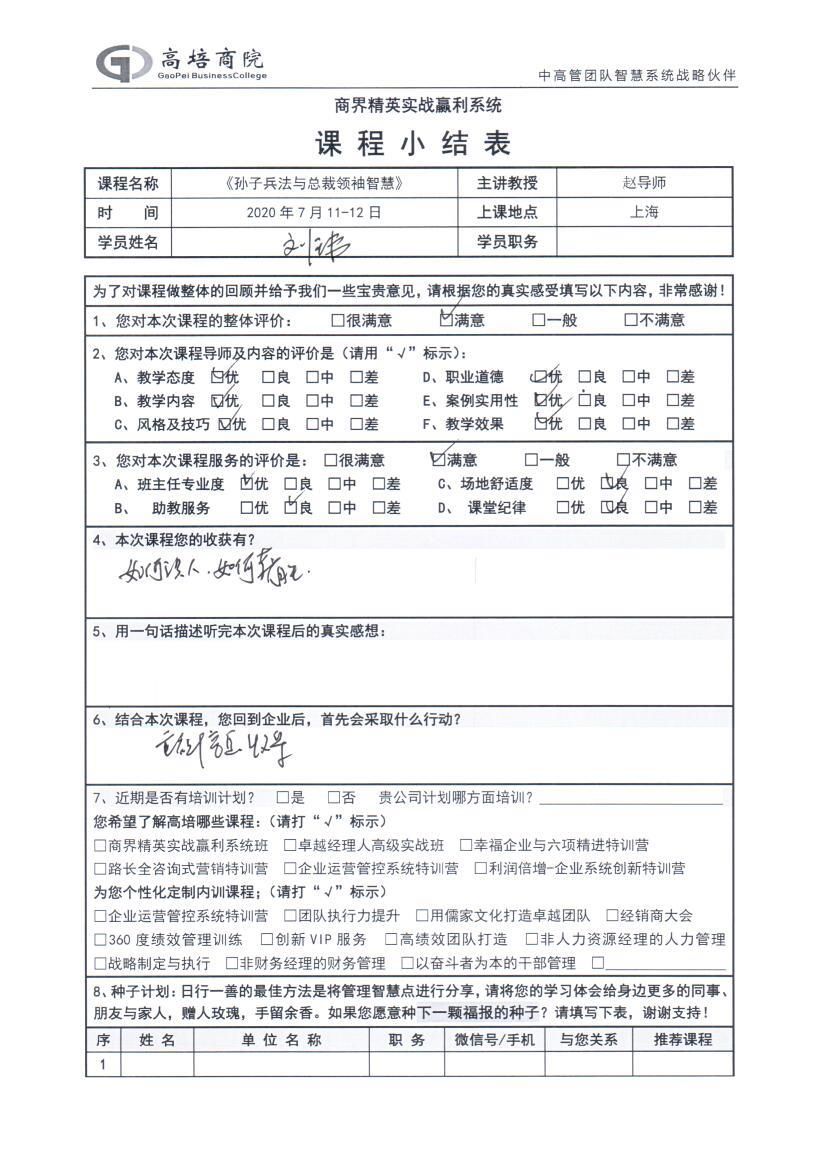 高培商院
GaoPei BusinessCollege
中高管团队智慧系统战略伙伴
商界精英实战赢利系统
课程小结表
课程名称 《孙子兵法与总裁领袖智慧》 主讲教授 赵导师
时 间 2020年7月11-12日 上课地点 上海
学员姓名 刘玮 学员职务
为了对课程做整体的回顾并给予我们一些宝贵意见，请根据您的真实感受填写以下内容，非常感谢！
1、您对本次课程的整体评价： □很满意 ☑满意 □一般 □不满意
2、您对本次课程导师及内容的评价是（请用“√”标示）：
A、教学态度 ☑优 □良 □中 □差 D、职业道德 ☑优 □良 □中 □差
B、教学内容 ☑优 □良 □中 □差 E、案例实用性 ☑优 □良 □中 □差
C、风格及技巧 ☑优 □良 □中 □差 F、教学效果 ☑优 □良 □中 □差
3、您对本次课程服务的评价是： □很满意 ☑满意 □一般 □不满意
A、班主任专业度 ☑优 □良 □中 □差 C、场地舒适度 □优 ☑良 □中 □差
B、 助教服务 □优 ☑良 □中 □差 D、 课堂纪律 □优 ☑良 □中 □差
4、本次课程您的收获有？
如何识人.如何
5、用一句话描述听完本次课程后的真实感想：
6、结合本次课程，您回到企业后，首先会采取什么行动？
7、近期是否有培训计划？ □是 □否 贵公司计划哪方面培训？
您希望了解高培哪些课程：（请打“√”标示）
□商界精英实战赢利系统班 □卓越经理人高级实战班 □幸福企业与六项精进特训营
□路长全咨询式营销特训营 □企业运营管控系统特训营 □利润倍增-企业系统创新特训营
为您个性化定制内训课程；（请打“√”标示）
□企业运营管控系统特训营 □团队执行力提升 □用儒家文化打造卓越团队 □经销商大会
□360度绩效管理训练 □创新VIP服务 □高绩效团队打造 □非人力资源经理的人力管理
□战略制定与执行 □非财务经理的财务管理 □以奋斗者为本的干部管理 □
8、种子计划：日行一善的最佳方法是将管理智慧点进行分享，请将您的学习体会给身边更多的同事、
朋友与家人，赠人玫瑰，手留余香。如果您愿意种下一颗福报的种子？请填写下表，谢谢支持！
序 姓名 单位名称 职务 微信号/手机 与您关系 推荐课程
1